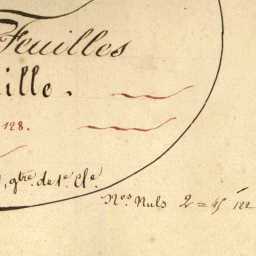 Feuilles
ille.
128.
, gtre. de 1e. Cle.
Nos. Nuls 2 = 45 122